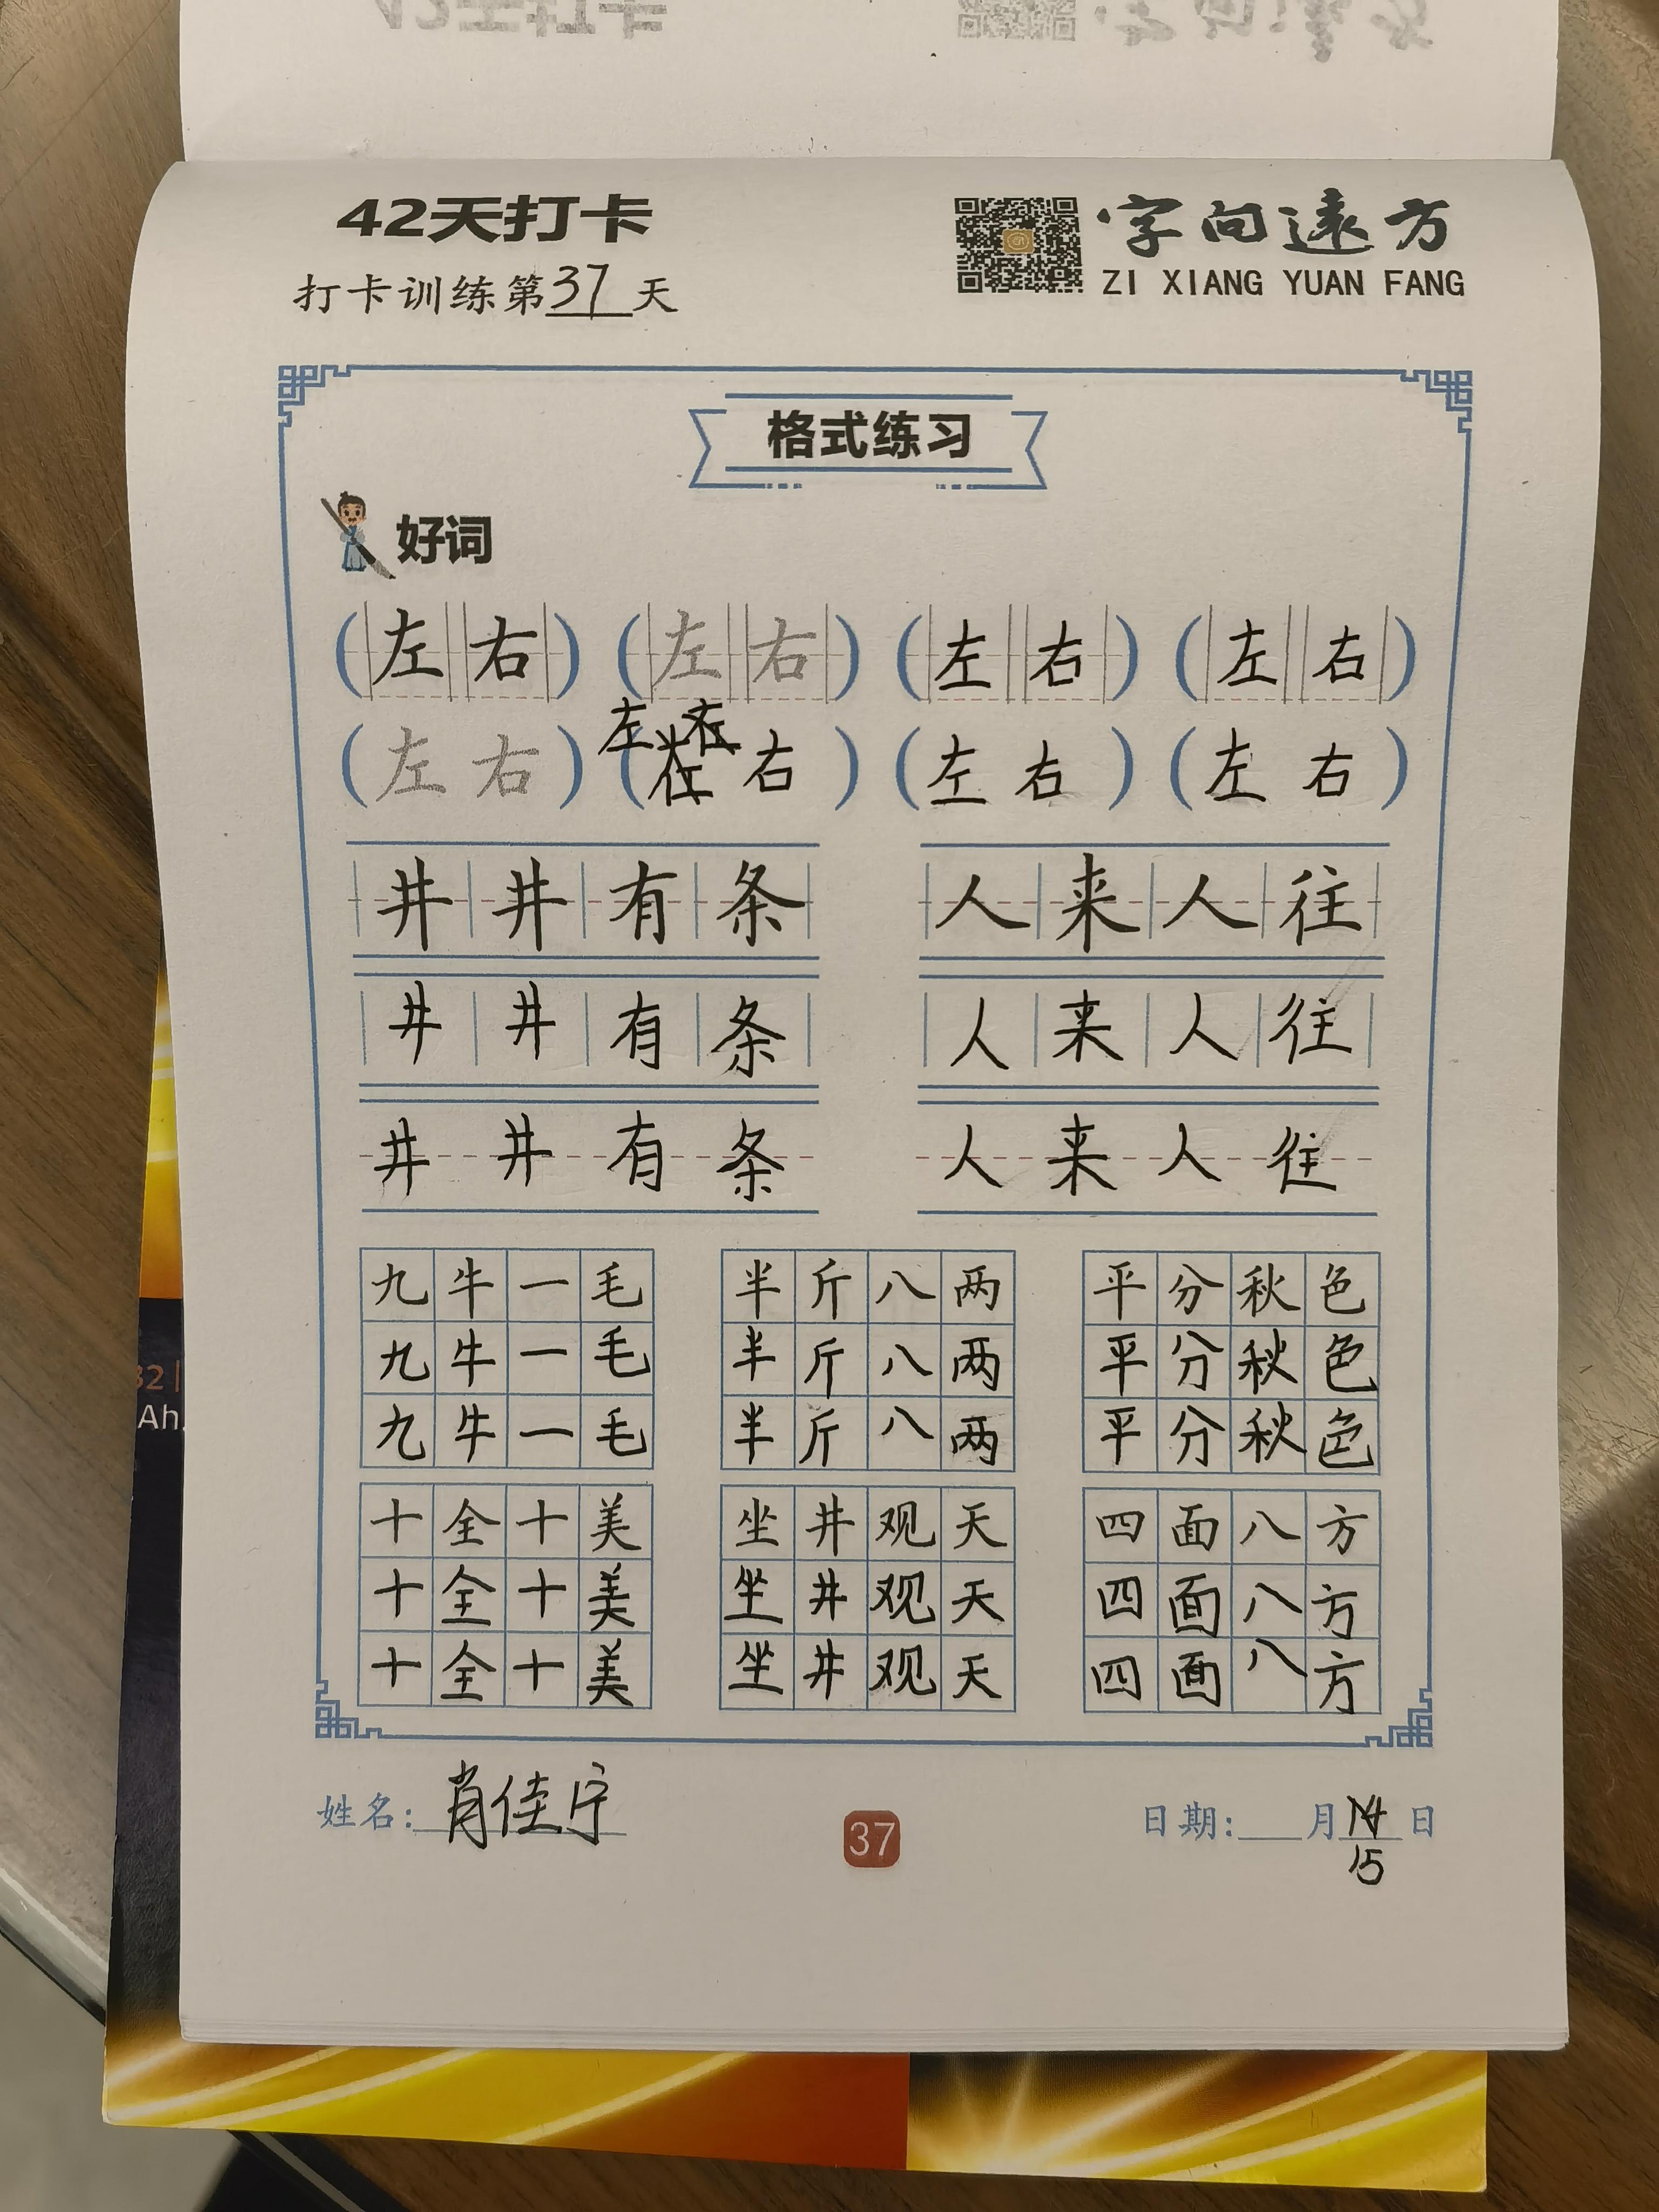 42天打卡
字向遠方
打卡训练第37天
ZI XIANG YUAN FANG
格式练习
好词
(左右) (左右) (左右) (左右)
左 右
(左右) (左右) (左右) (左右)
井井有条 人来人往
井井有条 人来人往
井井有条 人来人往
九牛一毛 半斤八两 平分秋色
九牛一毛 半斤八两 平分秋色
九牛一毛 半斤八两 平分秋色
十全十美 坐井观天 四面八方
十全十美 坐井观天 四面八方
十全十美 坐井观天 四面八方
姓名: 肖佳宁 37 日期: 月14日
15
32|
Ah.